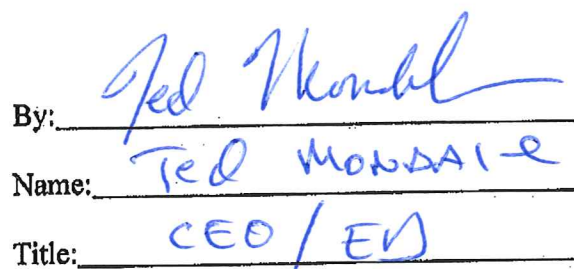 By: Ted Mondal
Name: Ted MONDALE
Title: CEO / ED